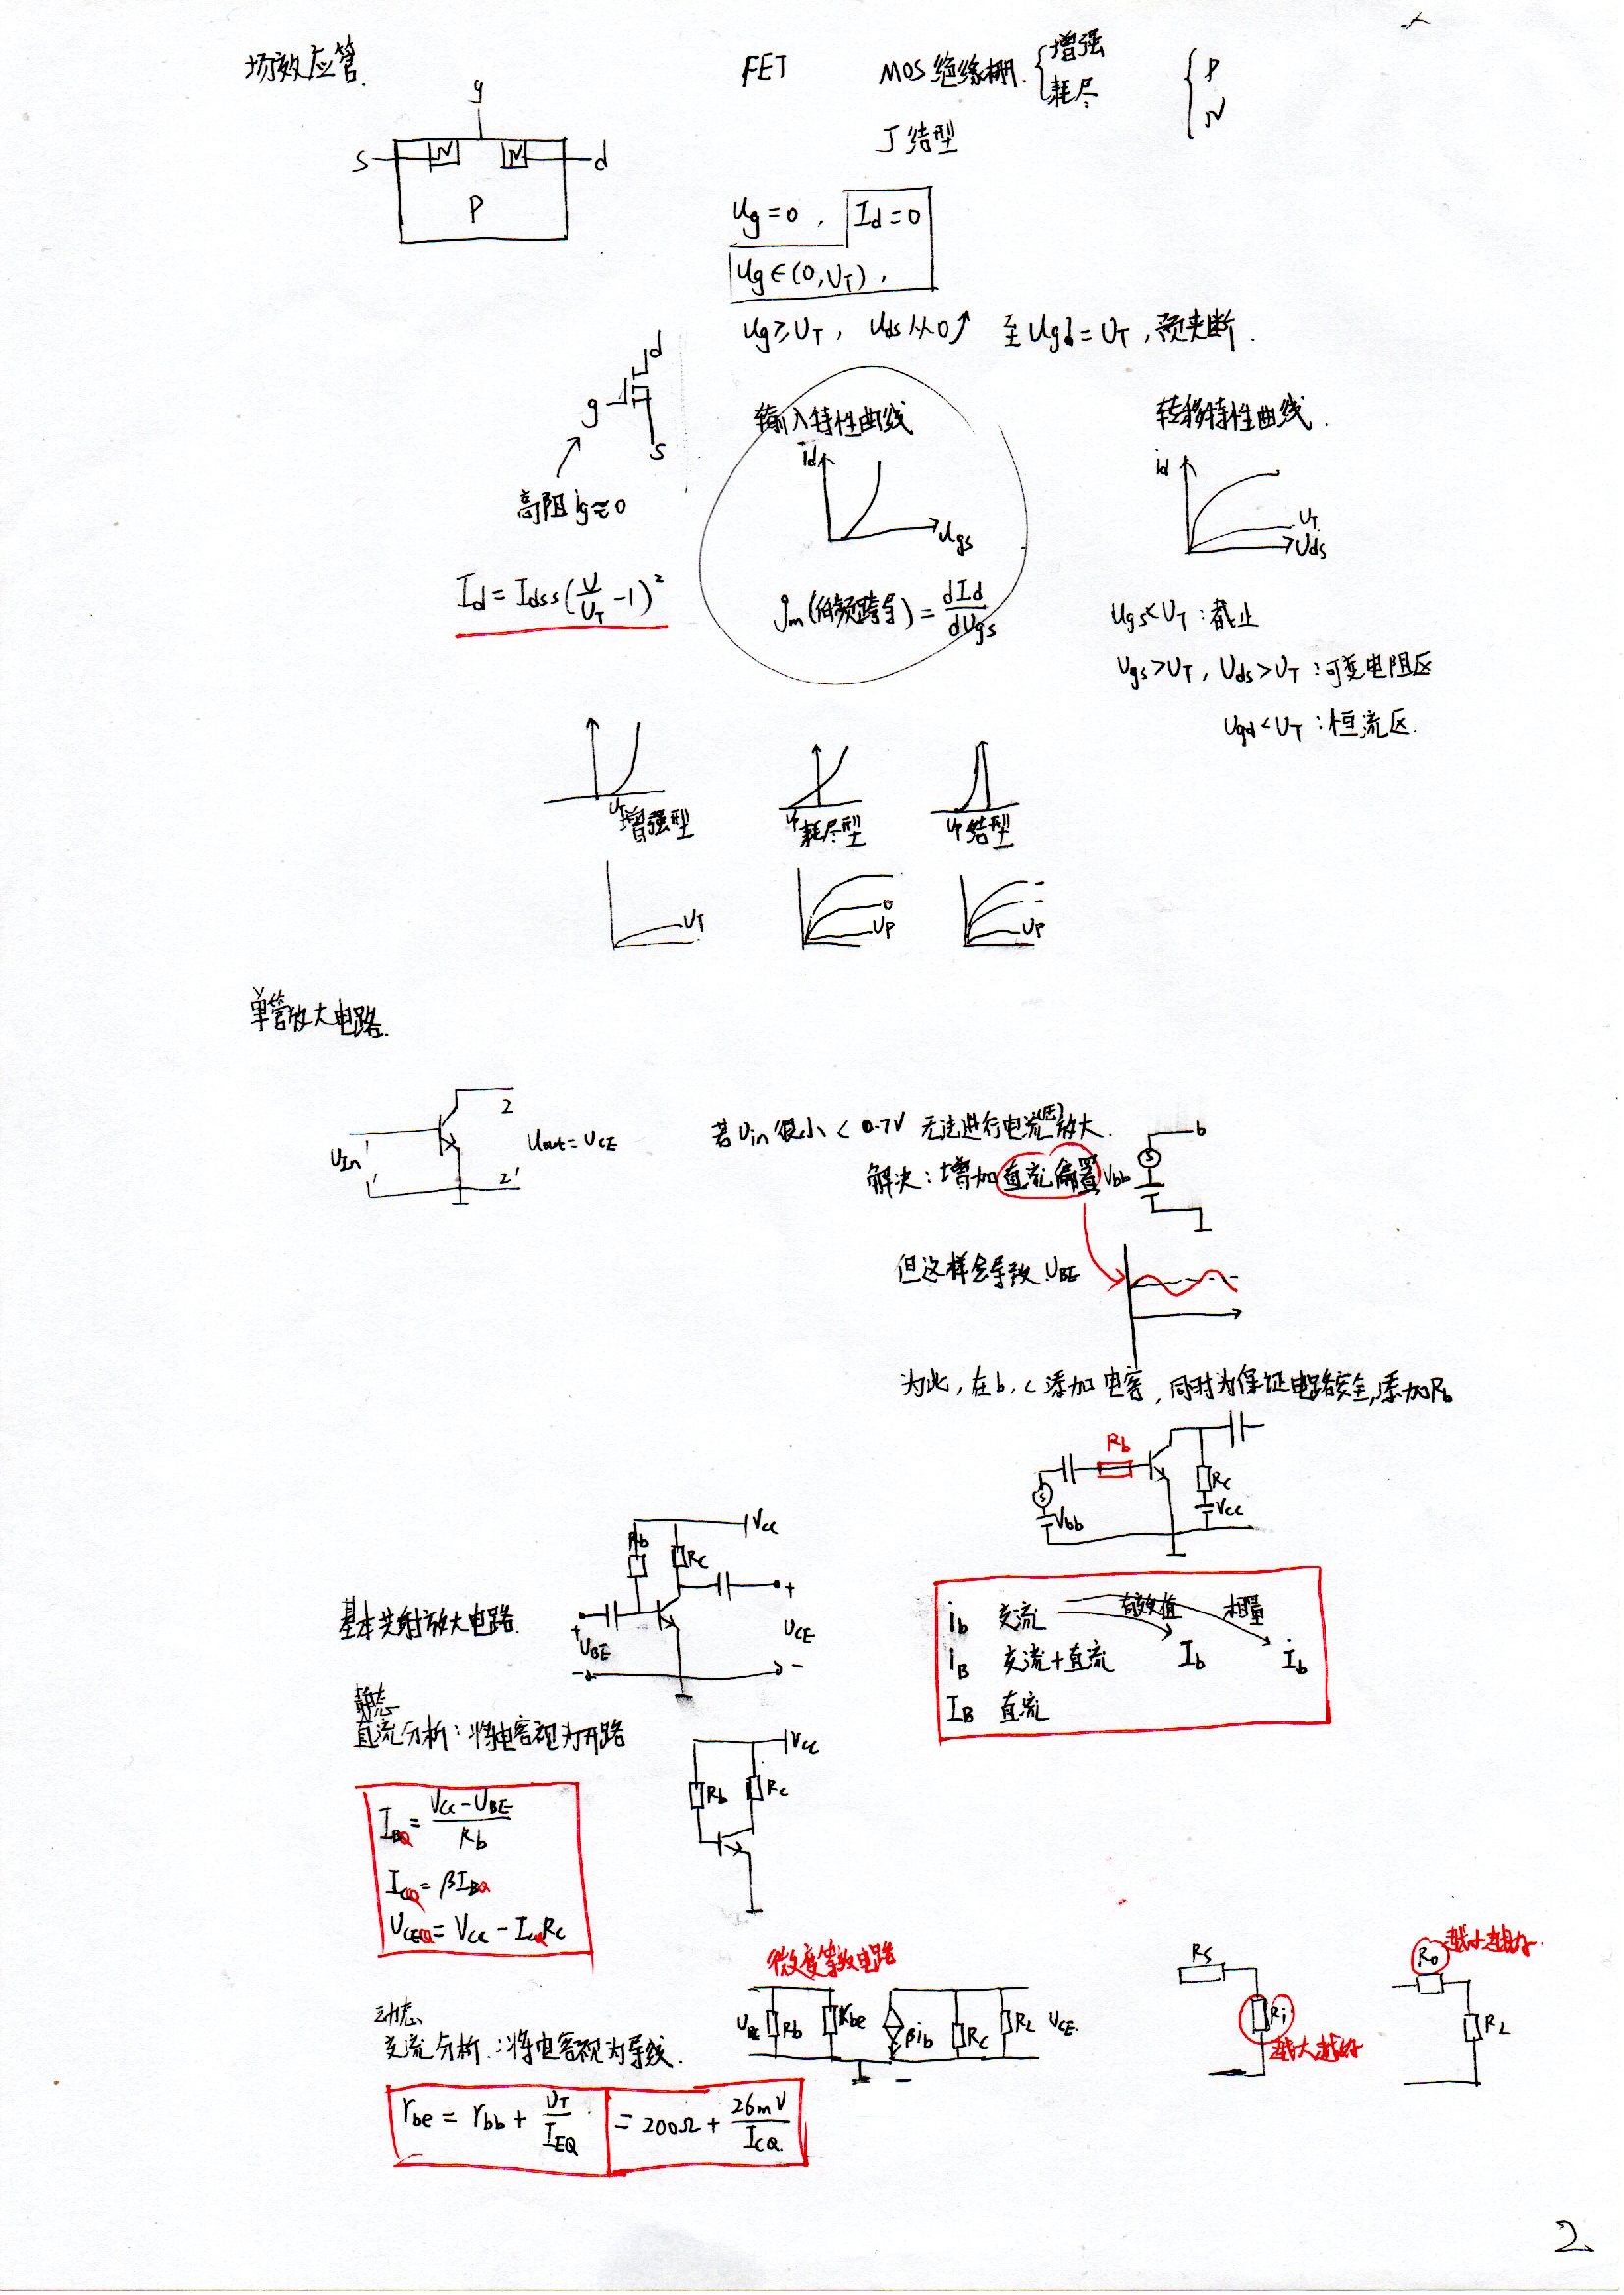 场效应管.
FET
MOS 绝缘栅. { 增强
耗尽
{ P
N
J 结型
g
s N N d
P
Ug=0 , Id=0
Ug∈(0,UT) ,
Ug≥UT , Uds从0↑ 至Ugd=UT , 预夹断.
d
g
s
高阻 ig≈0
输入特性曲线
id
Ugs
转移特性曲线.
id
UT
Uds
Id = Idss(U/UT -1)²
gm(低频跨导) = dId/dUgs
Ugs<UT : 截止
Ugs>UT , Uds>UT : 可变电阻区
Ugd<UT : 恒流区.
UT 增强型
UP 耗尽型
UP 结型
UT
0
UP
UP
单管放大电路.
2
UIn
Uout=UCE
2'
若Uin很小 < 0.7V 无法进行电流(压)放大.
b
解决: 增加直流偏置Vbb
但这样会导致 UBE
为此, 在b, c 添加电容, 同时为保证电路安全, 添加Rb
Rb
Rc
Vcc
Vbb
Vcc
Rb
Rc
基本共射放大电路.
+ UBE -
+ UCE -
ib 交流 有效值 相量
iB 交流+直流 Ib İb
IB 直流
静态
直流分析: 将电容视为开路
Vcc
Rb Rc
IBQ = (Vcc-UBE)/Rb
ICQ = βIBQ
UCEQ = Vcc - ICQRc
微变等效电路
UBE Rb rbe βib Rc RL UCE
Rs
Ri
越大越好
Ro
越小越好.
RL
动态
交流分析: 将电容视为导线.
rbe = rbb + UT/IEQ = 200Ω + 26mV/ICQ
2